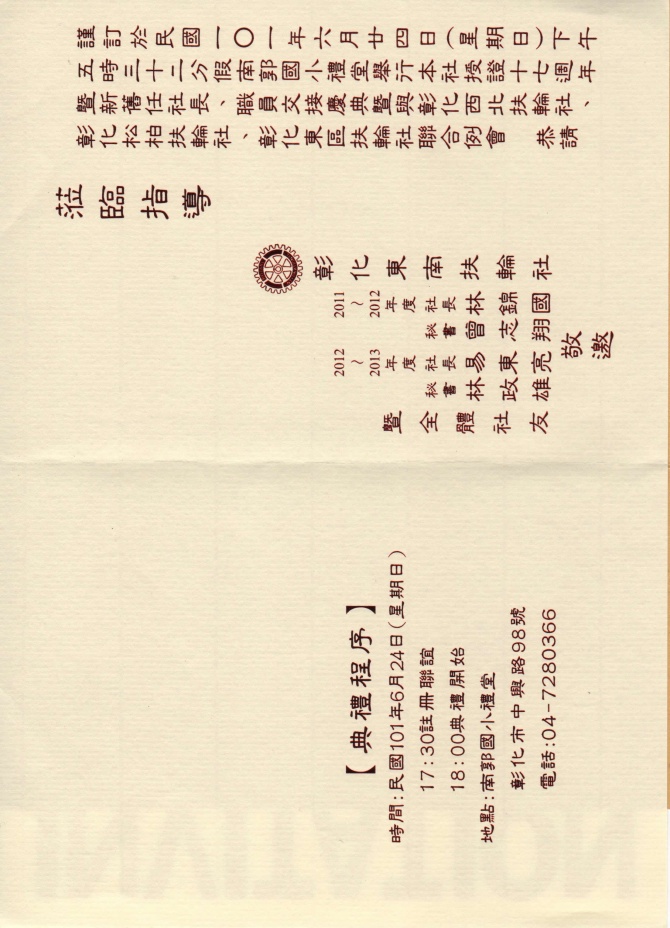 謹訂於民國一〇一年六月廿四日(星期日)下午
五時三十二分假南郭國小禮堂舉行本社授證十七週年
暨新舊任社長、職員交接慶典暨與彰化西北扶輪社、
彰化松柏扶輪社、彰化東區扶輪社聯合例會 恭請
蒞臨指導
彰化東南扶輪社
2011~2012年度 社長 林錦國
秘書 曾志翔
2012~2013年度 社長 易東亮
秘書 林政雄
暨全體社友
敬邀
【典禮程序】
時間:民國101年6月24日(星期日)
17:30註冊聯誼
18:00典禮開始
地點:南郭國小禮堂
彰化市中興路98號
電話:04-7280366